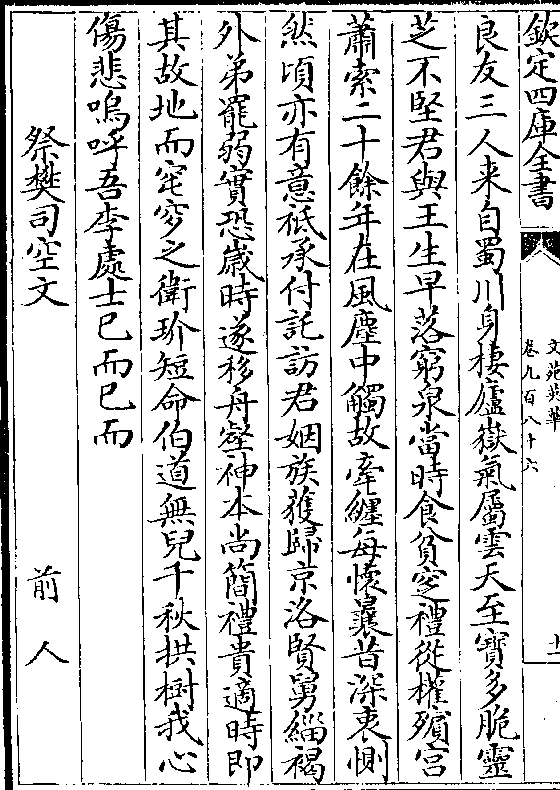 欽定四庫全書
文苑英華
卷九百八十六
十一
良友三人来自蜀川身棲廬嶽氣屬雲天至寳多脆靈
芝不堅君與王生早落窮泉當時食貧窆禮從權殯宫
蕭索二十餘年在風塵中觸故牽纏每懷曩昔深衷惻
然頃亦有意祇承付託訪君姻族獲歸京洛賢舅緇褐
外弟罷弱實恐嵗時遂移舟壑神本尚簡禮貴適時即
其故地而窀穸之衛玠短命伯道無兒千秋拱樹我心
傷悲嗚呼吾李處士已而已而
祭樊司空文
前人